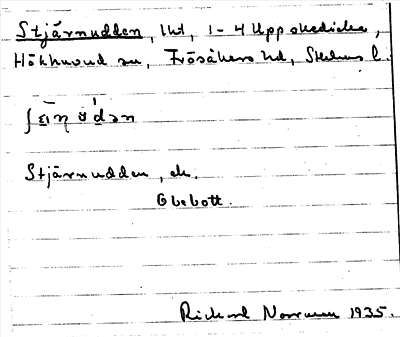 Stjärnudden, lht, 1-4 Uppskedicka,
Hökhuvud sn, Frösåkers hd, Sthlms l.
Stjärnudden, ek.
Obebott.
Richard Norrman 1935.